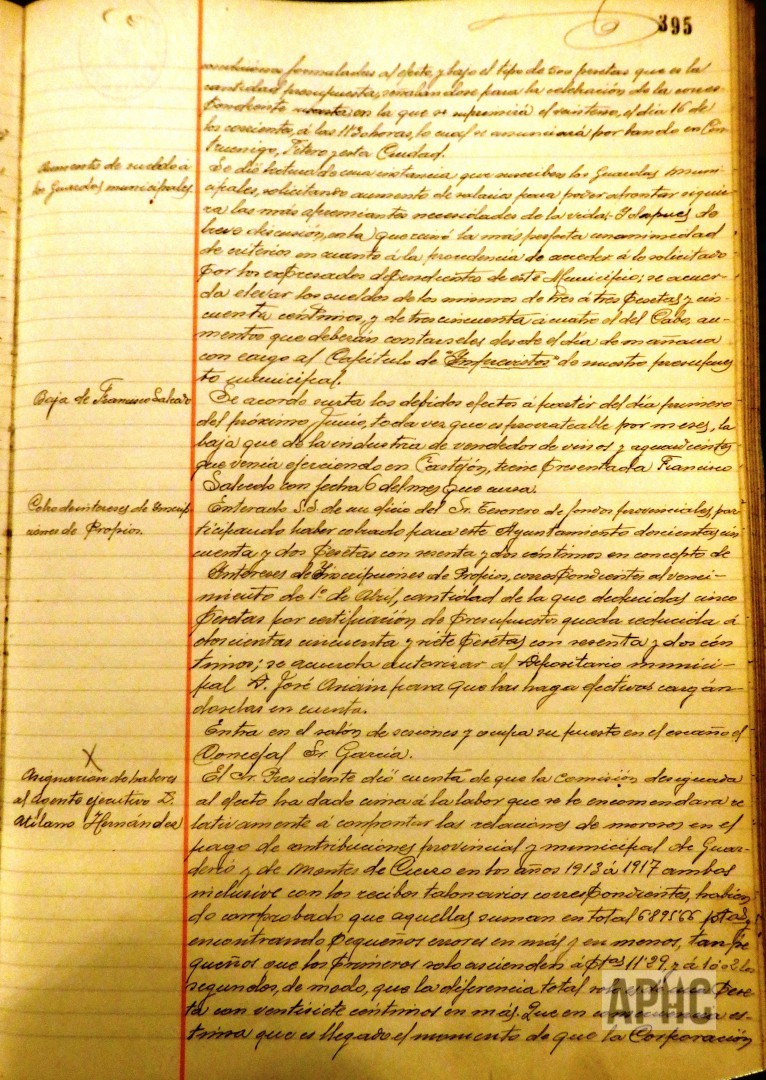 395
condiciones formuladas al efecto, y bajo el tipo de pesetas que es la
cantidad presupuesta, señalandose para la celebración de la corres-
pondiente subasta en la que se suprimirá el veinteno, el día 16 de
los corrientes, á las 11'30 horas, lo cual se anunciará por bando en Cin-
truenigo, Fitero y esta Ciudad.
Aumento de sueldo á
los Guardas municipales.
Se dió lectura de una instancia que suscriben los Guardas muni-
cipales, solicitando aumento de salarios para poder afrontar siquie-
ra las más apremiantes necesidades de la vida. Y después de
breve discusión, en la que reinó la más perfecta unanimidad
de criterios en cuanto á la procedencia de acceder á lo solicitado
por los expresados dependientes de este Municipio; se acuer-
da elevar los sueldos de los mismos de tres á tres pesetas y cin-
cuenta céntimos, y de tres cincuenta á cuatro el del Cabo, au-
mentos que deberán contarseles desde el día de mañana
con cargo al Capítulo de "Imprevistos" de nuestro presupues-
to municipal.
Baja de Francisco Salcedo
Se acordó surta los debidos efectos á partir del día primero
del próximo Junio, toda vez que es prorrateable por meses, la
baja que de la industria de vendedor de vinos y aguardientes
que venía ejerciendo en Castejón, tiene presentada Francisco
Salcedo con fecha 6 del mes que cursa.
Cobro de intereses de Inscrip-
ciones de Propios.
Enterado S.S. de un oficio del Sr. Tesorero de fondos provinciales, par-
ticipando haber cobrado para este Ayuntamiento doscientas cin-
cuenta y dos pesetas con sesenta y dos céntimos en concepto de
Intereses de Inscripciones de Propios, correspondientes al venci-
miento de 1º de Abril, cantidad de la que deducidas cinco
pesetas por certificación de Presupuestos queda reducida á
doscientas cincuenta y siete pesetas con sesenta y dos cén-
timos; se acuerda autorizar al Depositario munici-
pal D. José Ariain para que las haga efectivas cargán-
doselas en cuenta.
Entra en el salón de sesiones y ocupa su puesto en el escaño el
Concejal Sr. García.
X
Asignación de haberes
al Agente ejecutivo D.
Atilano Hernández
El Sr. Presidente dió cuenta de que la Comisión designada
al efecto ha dado cima á la labor que se le encomendara re-
lativamente á confrontar las relaciones de morosos en el
pago de contribuciones provincial y municipal de Guar-
derío y de Montes de Cierzo en los años 1913 á 1917 ambos
inclusive con los recibos talonarios correspondientes, habien-
do comprobado que aquellas suman en total 6895'66 ptas,
encontrando pequeños errores en más y en menos, tan pe-
queños que los primeros solo ascienden á Ptas 11'29 y á 10'02 los
segundos, de modo, que la diferencia total pese-
ta con veintisiete céntimos en más. Que en consecuencia es-
tima que es llegado el momento de que la Corporación
APHC